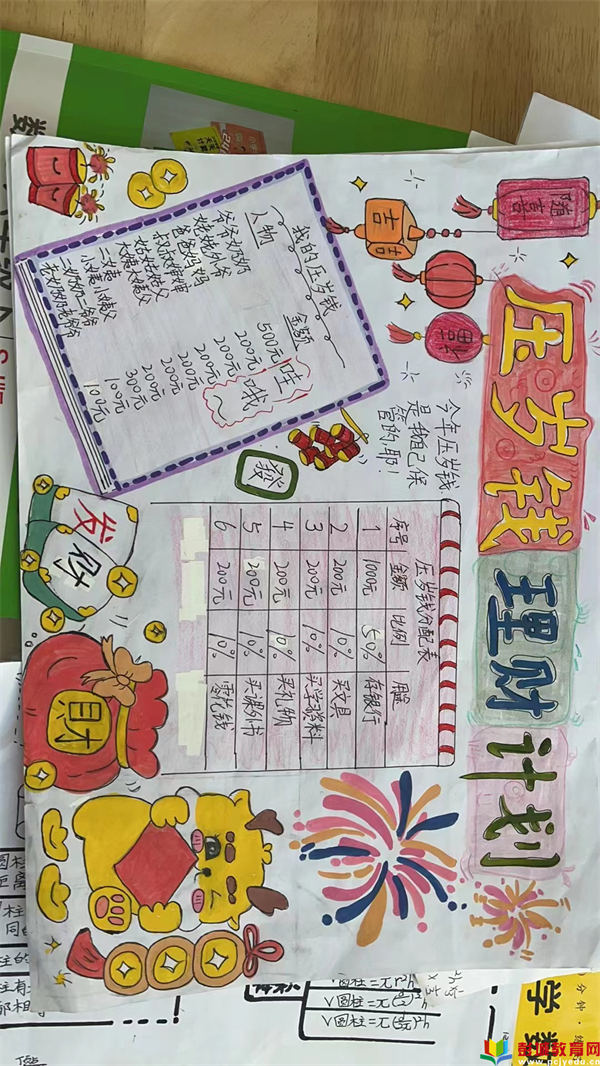 压岁钱理财计划
随喜
吉
吉
我的压岁钱
人物 金额
爷爷奶奶 500元
姥姥外爷 200元
爸爸妈妈 200元
叔叔婶婶 200元
姑姑姑父 200元
大姨大姨父 200元
二姨 300元
小姨小姨父 100元
二奶奶二爷爷 100元
哇
哦
今年压岁钱
是我自己保
管的,耶!
發
压岁钱分配表
序号 金额 比例 用途
1 1000元 50% 存银行
2 200元 10% 买文具
3 200元 10% 买学习资料
4 200元 10% 买礼物
5 200元 10% 买课外书
6 200元 10% 零花钱
发财
財
学数
彭成教育网
www.pcjyedu.cn